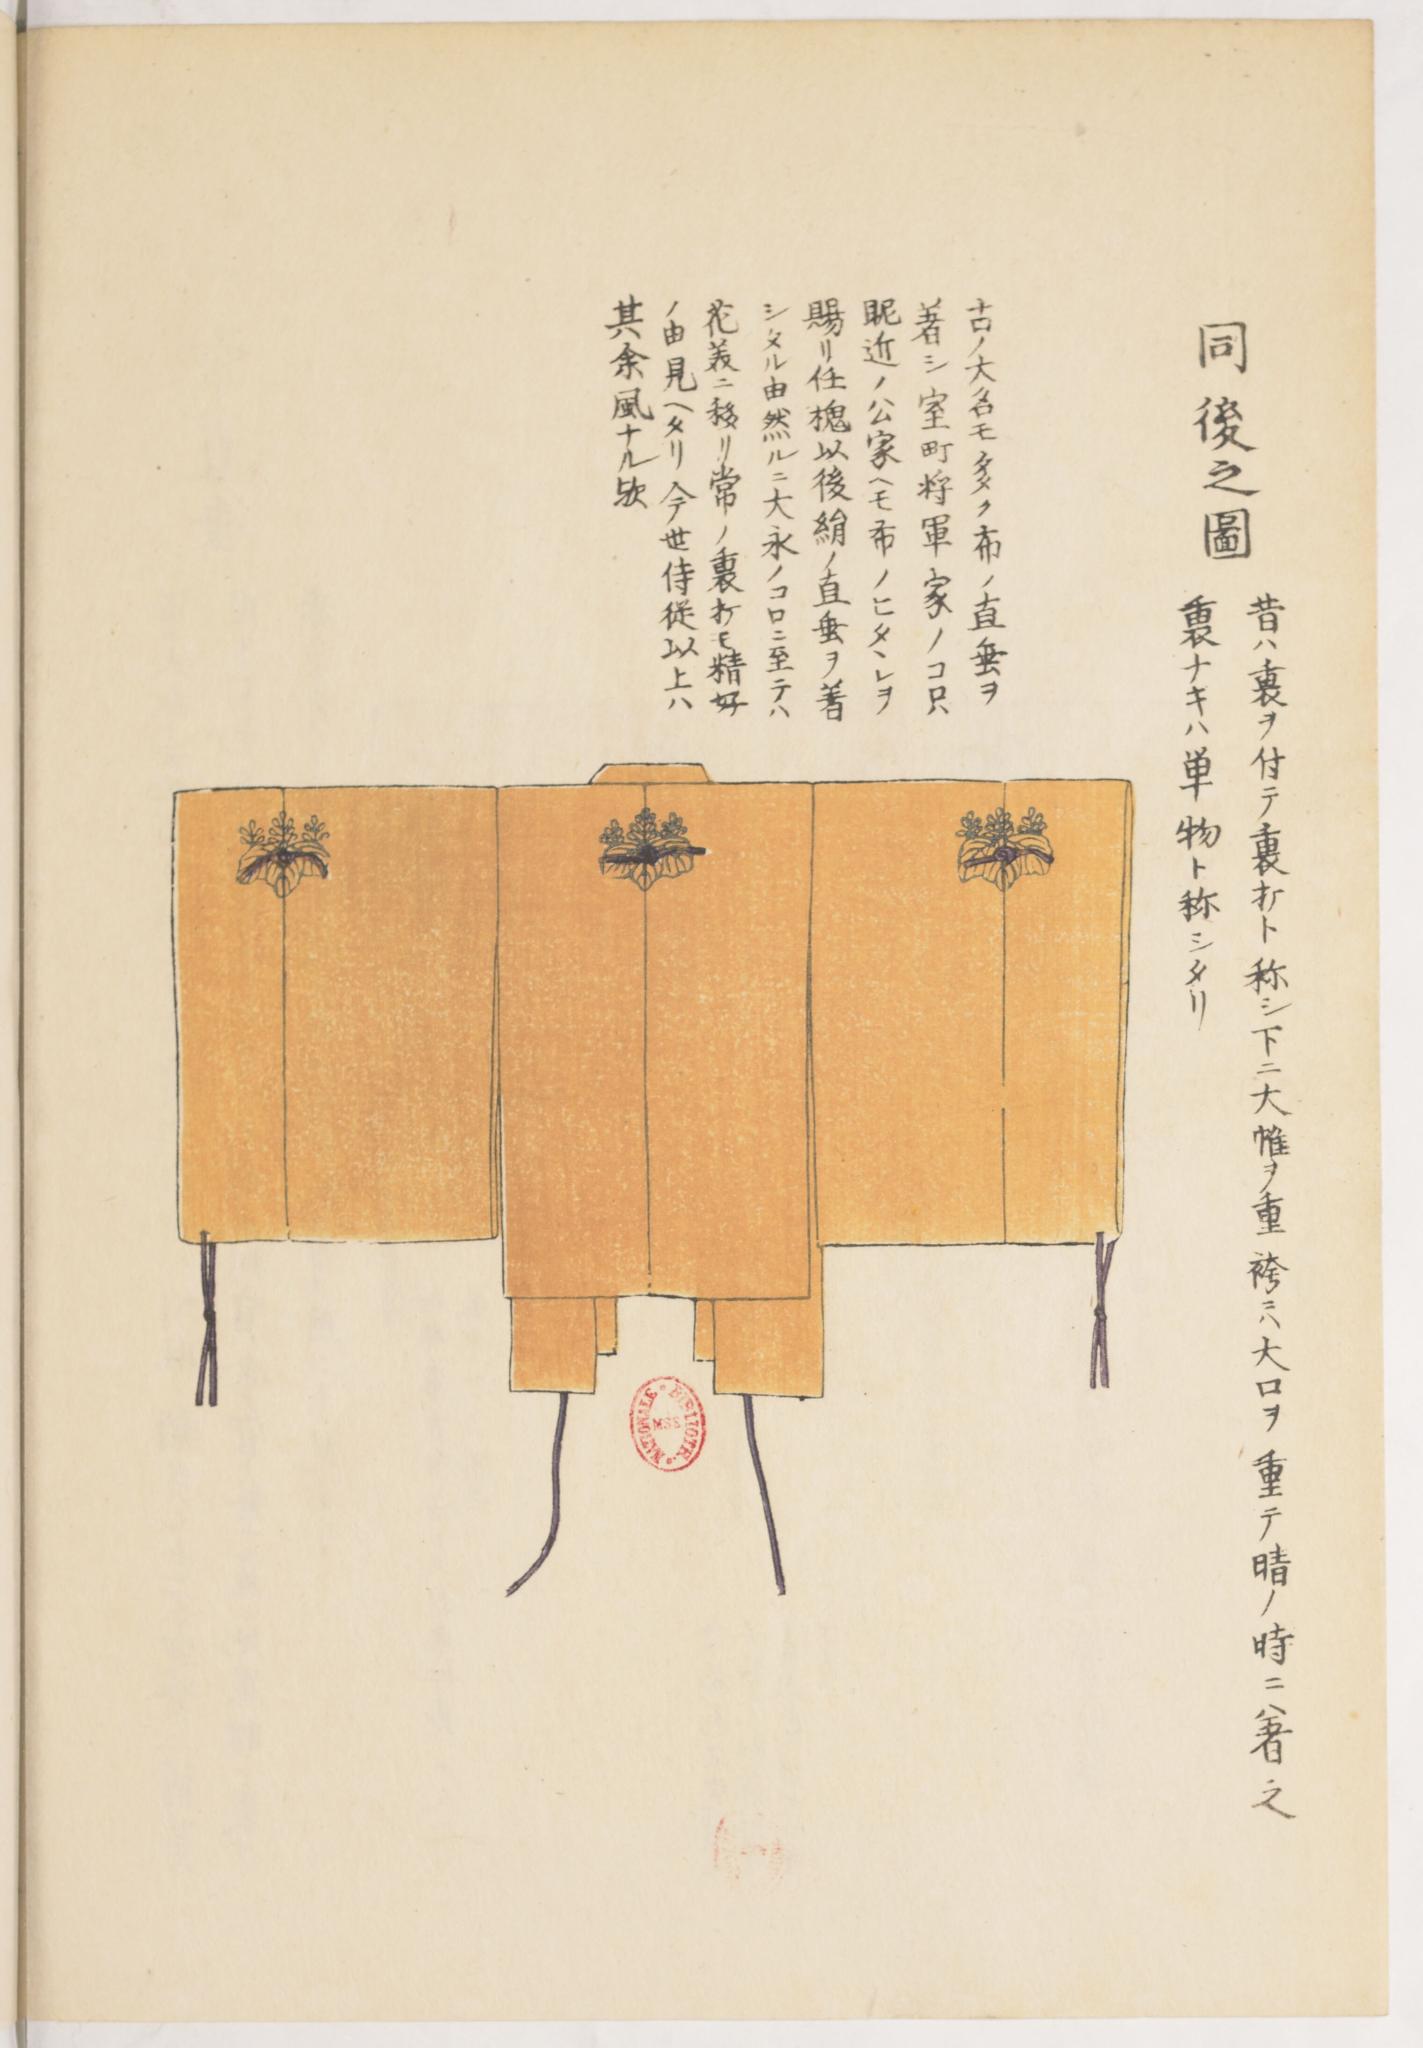 同後之圖
昔ハ裏ヲ付テ裏打ト称シ下ニ大帷ヲ重袴ニハ大口ヲ重テ晴ノ時ニハ著之
裏ナキハ単物ト称シタリ
古ノ大名モ多ク布ノ直垂ヲ
著シ室町将軍家ノコロハ
昵近ノ公家ヘモ布ノヒタヽレヲ
賜リ任槐以後絹ノ直垂ヲ著
シタル由然ルニ大永ノコロニ至テハ
花美ニ移リ常ノ裏打モ精好
ノ由見ヘタリ今世侍従以上ハ
其余風ナル欤
BIBLIOTH. NATIONALE
MSS